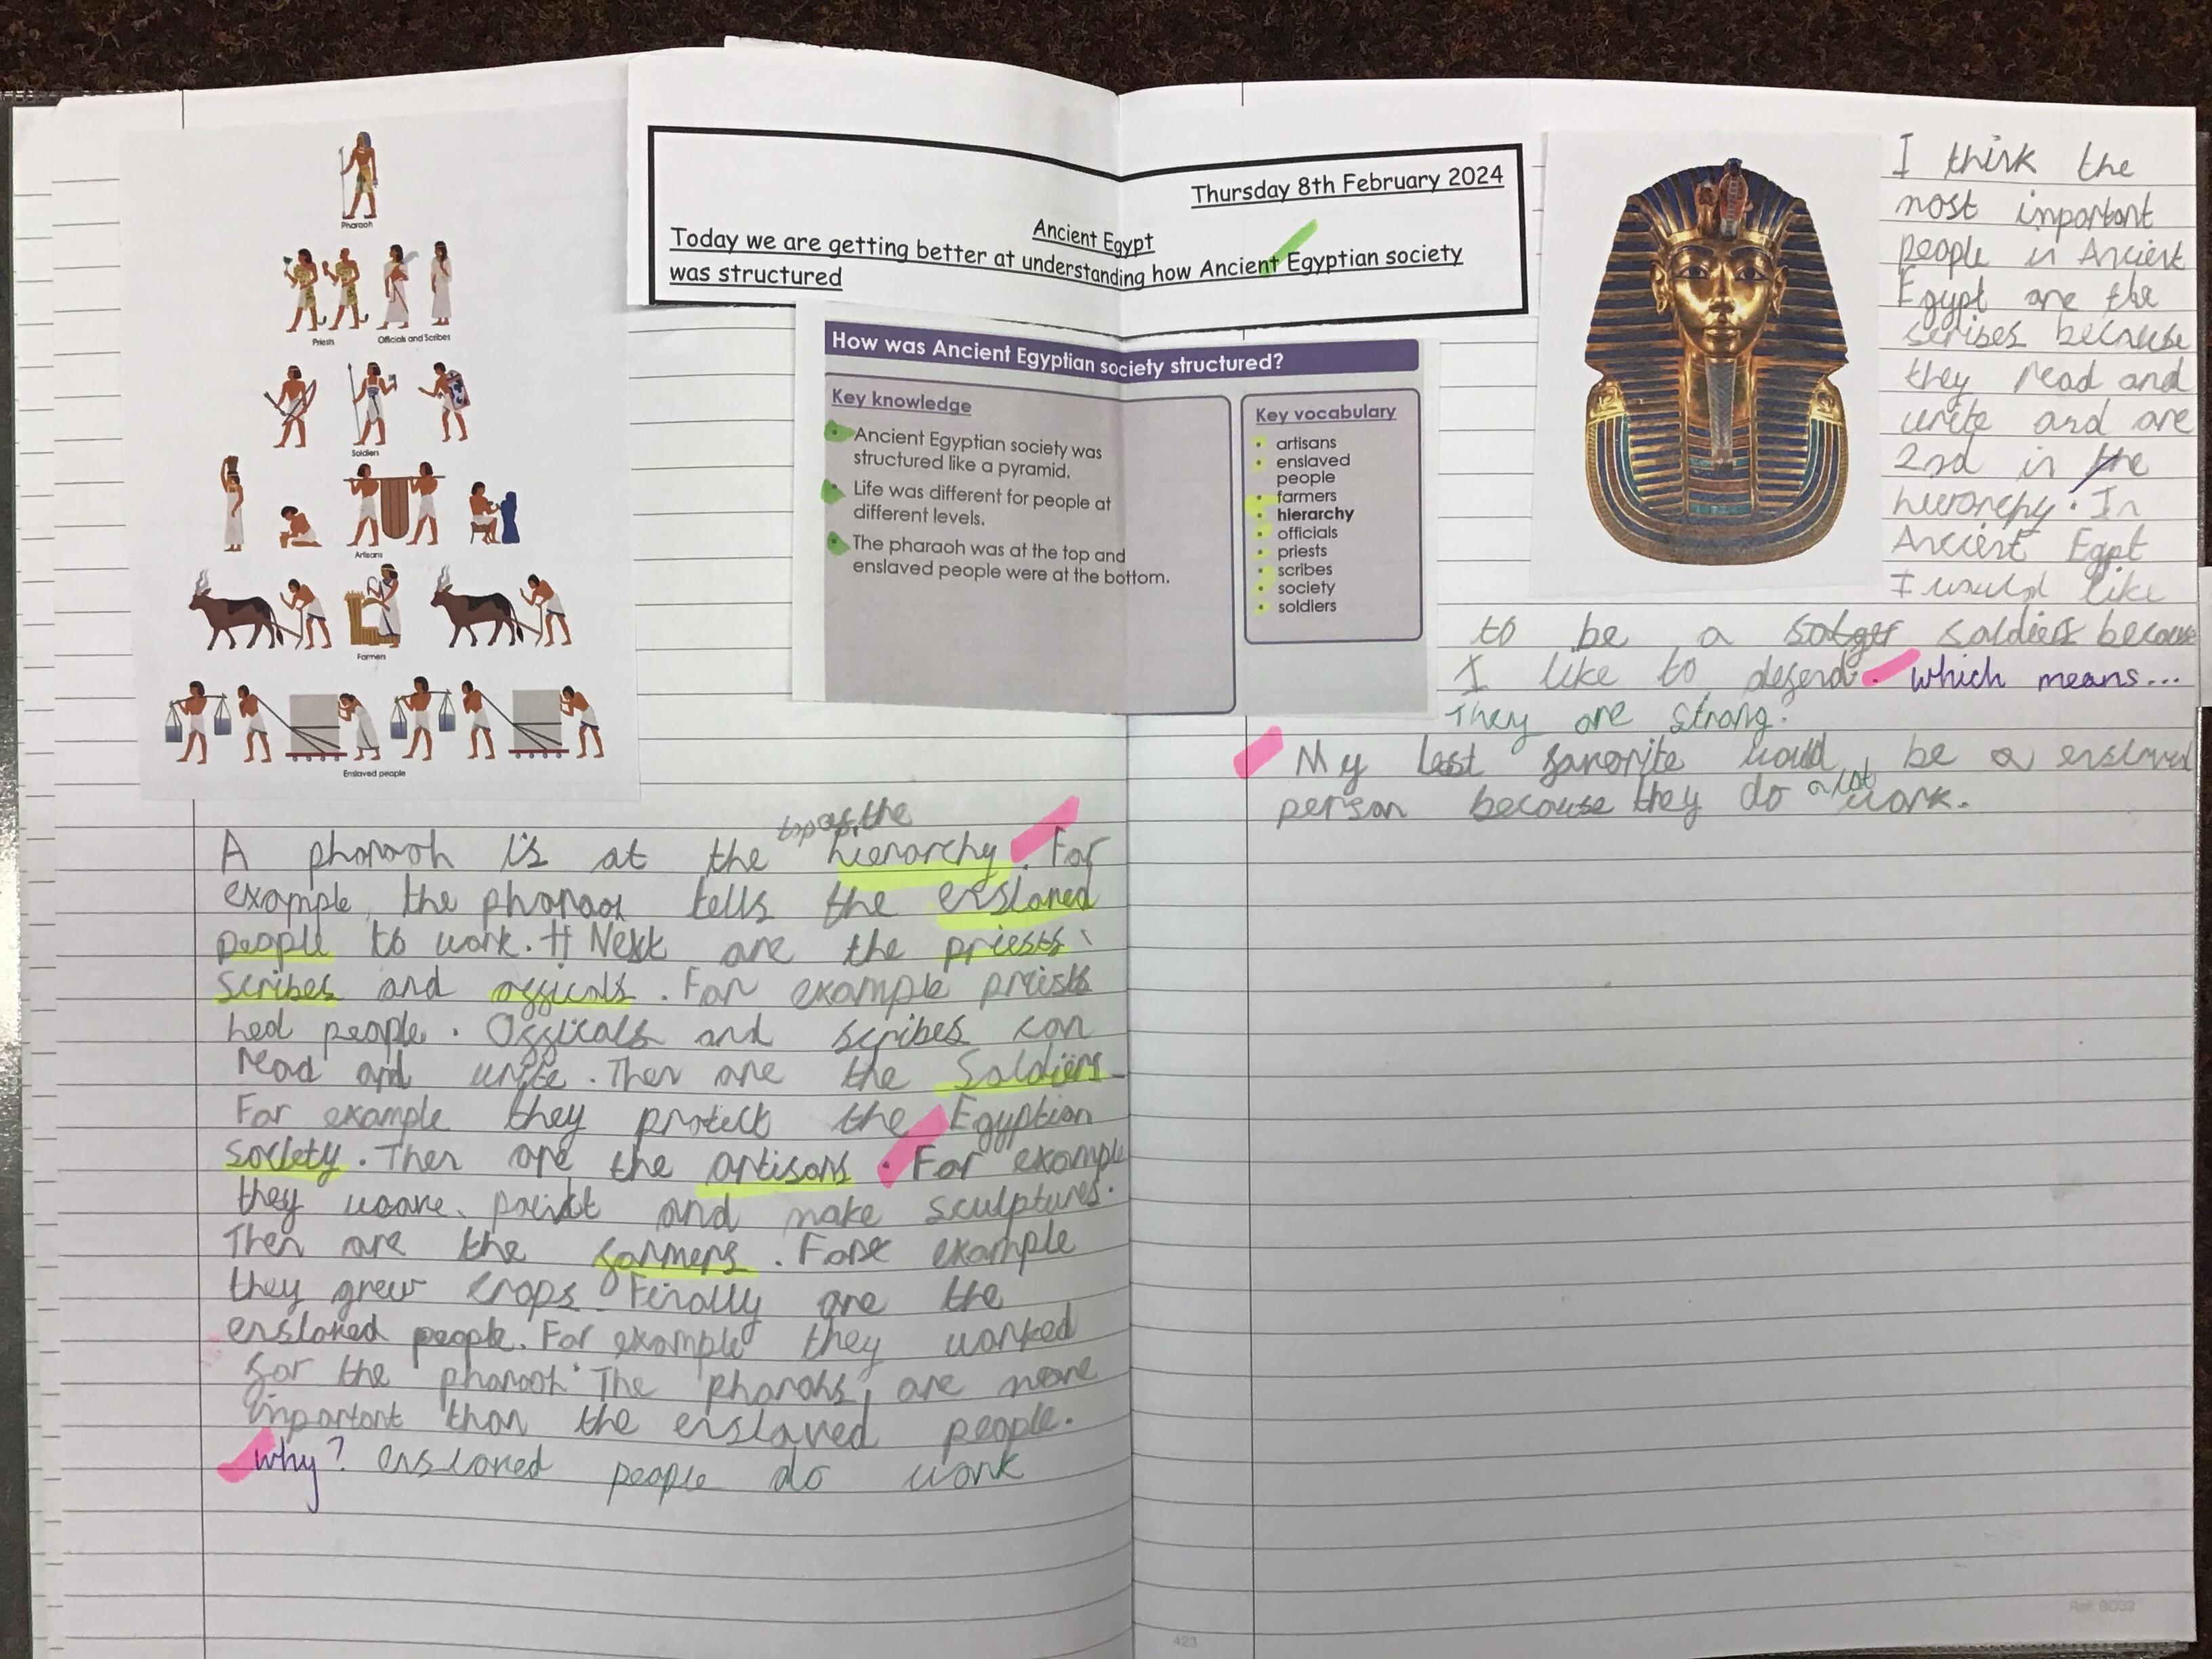 Pharaoh
Priests
Officials and Scribes
Soldiers
Artisans
Farmers
Enslaved people
Thursday 8th February 2024
Ancient Egypt
Today we are getting better at understanding how Ancient Egyptian society
was structured
How was Ancient Egyptian society structured?
Key knowledge
• Ancient Egyptian society was
structured like a pyramid.
• Life was different for people at
different levels.
• The pharaoh was at the top and
enslaved people were at the bottom.
Key vocabulary
• artisans
• enslaved
people
• farmers
• hierarchy
• officials
• priests
• scribes
• society
• soldiers
top of the
A pharaoh is at the hierarchy. For
example, the pharaoh tells the enslaved
people to work. Next are the priests,
scribes and officals. For example priests
hed people. Officals and scribes can
read and write. Then are the Soldiers
For example they protect the Egyption
society. Then are the artisans. For example
they weave, paint and make sculptures.
Then are the farmers. For example
they grew crops. Finally are the
enslaved people. For example they worked
for the pharaoh. The pharohs are more
important than the enslaved people.
why? enslaved people do work
I think the
most important
people in Ancient
Egypt are the
scribes because
they read and
write and are
2nd in the
hierarchy. In
Ancient Egpt
I would like
to be a soldiers because
I like to defend. which means...
They are strong.
My lest favorite would be a enslaved
person because they do a lot work.
423
Ref: 9D32